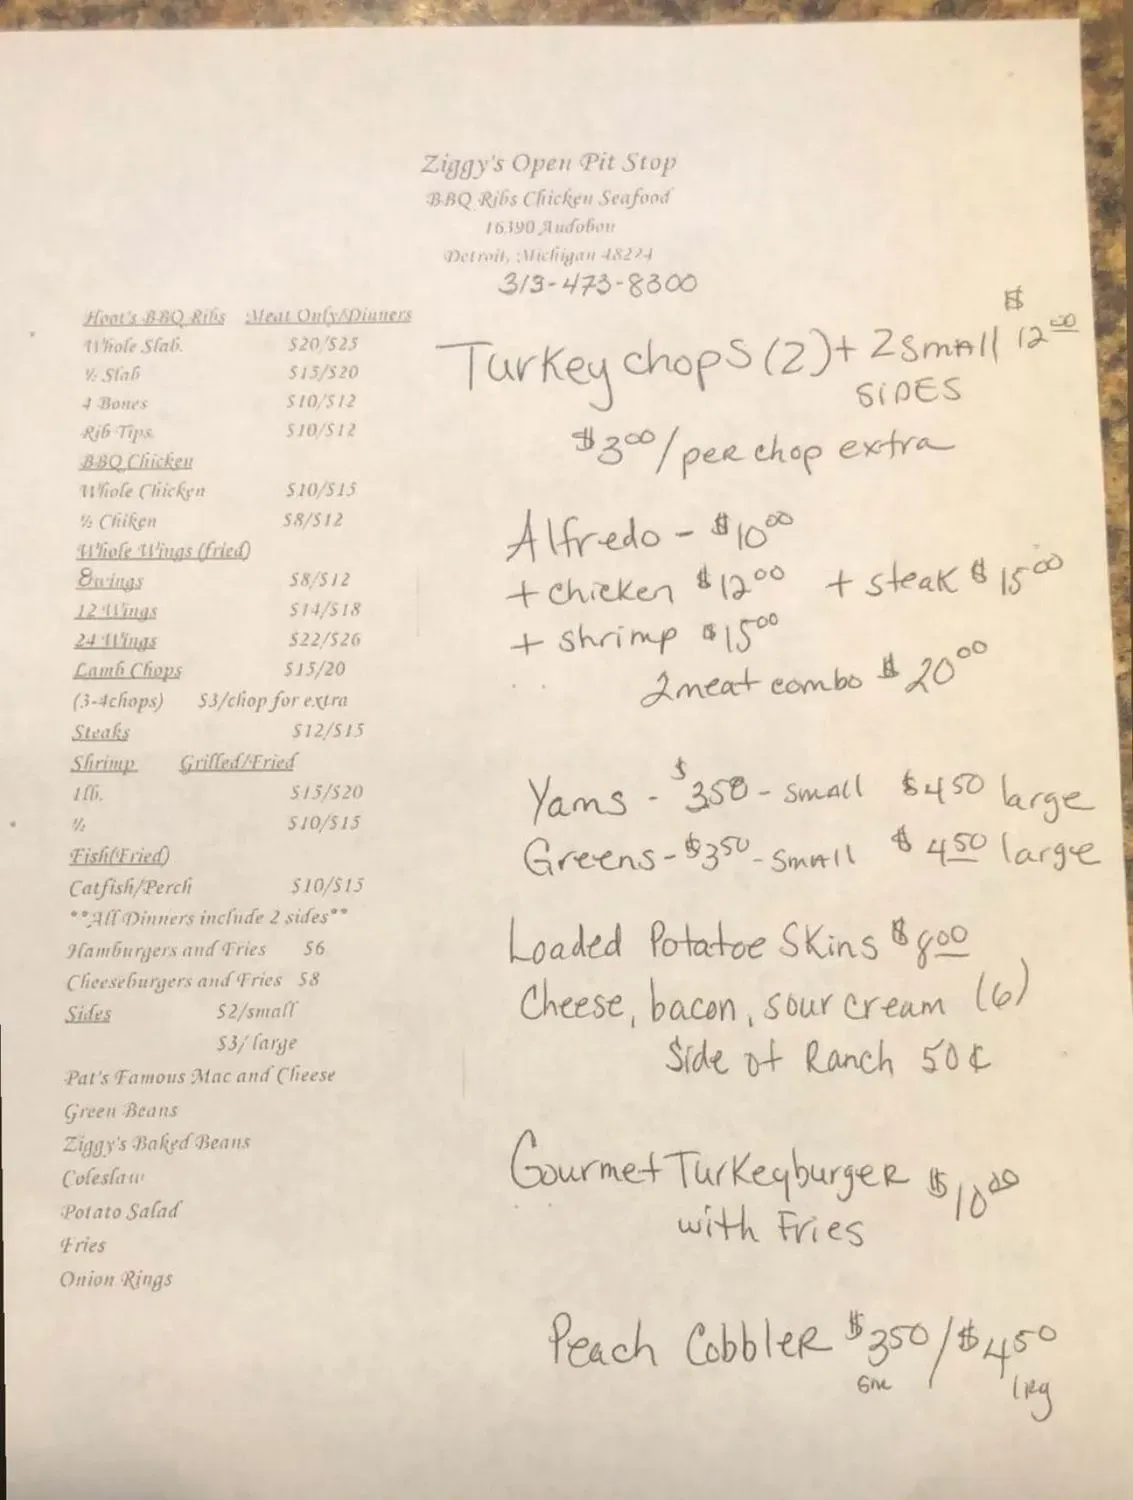 Ziggy's Open Pit Stop
BBQ Ribs Chicken Seafood
16390 Audobon
Detroit, Michigan 48224
313-473-8300
Hoot's BBQ Ribs Meat Only/Dinners
Whole Slab. $20/$25
½ Slab $15/$20
4 Bones $10/$12
Rib Tips $10/$12
BBQ Chicken
Whole Chicken $10/$15
½ Chiken $8/$12
Whole Wings (fried)
8wings $8/$12
12 Wings $14/$18
24 Wings $22/$26
Lamb Chops $15/20
(3-4chops) $3/chop for extra
Steaks $12/$15
Shrimp Grilled/Fried
1 lb. $15/$20
½ $10/$15
Fish(Fried)
Catfish/Perch $10/$15
**All Dinners include 2 sides**
Hamburgers and Fries $6
Cheeseburgers and Fries $8
Sides $2/small
$3/ large
Pat's Famous Mac and Cheese
Green Beans
Ziggy's Baked Beans
Coleslaw
Potato Salad
Fries
Onion Rings
Turkey chops (2) + 2 small $12 00
SIDES
$3 00/per chop extra
Alfredo - $10 00
+ chicken $12 00 + steak $15 00
+ shrimp $15 00
2 meat combo $20 00
Yams - $3 50 - small $4 50 large
Greens - $3 50 - small $4 50 large
Loaded Potatoe Skins $8 00
Cheese, bacon, sour cream (6)
Side of Ranch 50¢
Gourmet Turkeyburger $10 00
with Fries
Peach Cobbler $3 50/$4 50
sm lrg